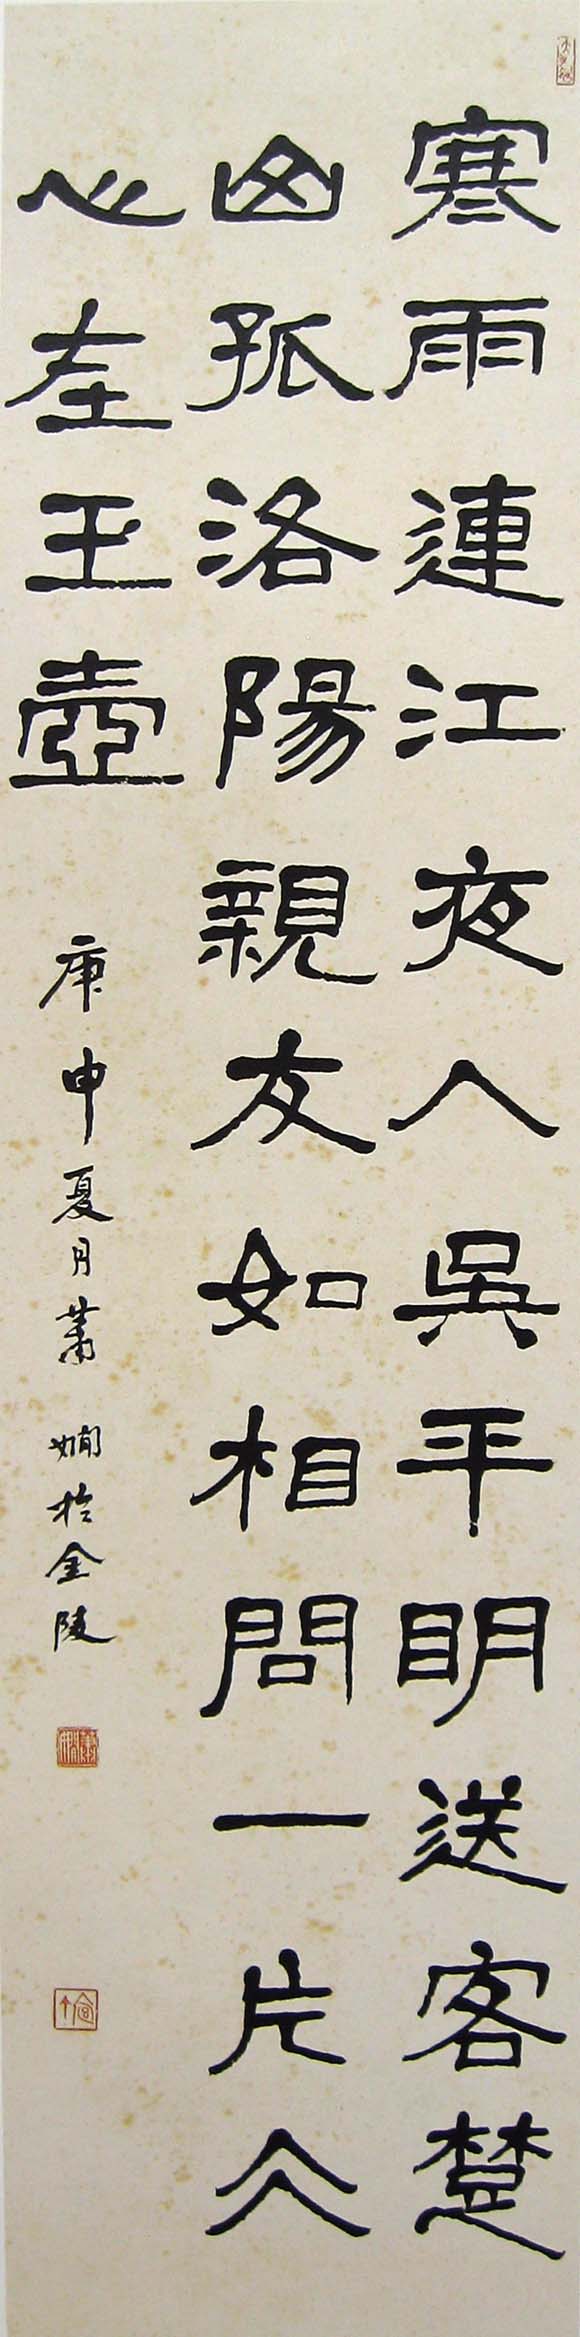 寒雨連江夜入吳平明送客楚
山孤洛陽親友如相問一片仌
心在玉壺
庚申夏月蕭嫻於金陵
蕭嫻